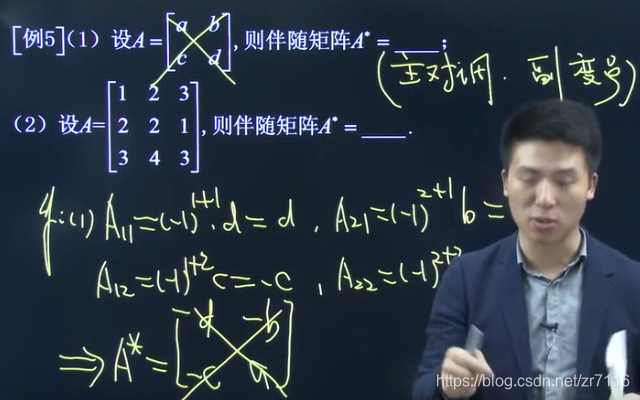 [例5](1) 设A=[a b c d],则伴随矩阵A*=____;
(主对调.副变号)
(2) 设A=[1 2 3
2 2 1
3 4 3],则伴随矩阵A*=____.
(1) A₁₁=(-1)¹⁺¹·d=d, A₂₁=(-1)²⁺¹b=
A₁₂=(-1)¹⁺²c=-c, A₂₂=(-1)²⁺²
⇒A*=[d -b
-c a]
https://blog.csdn.net/zr7116